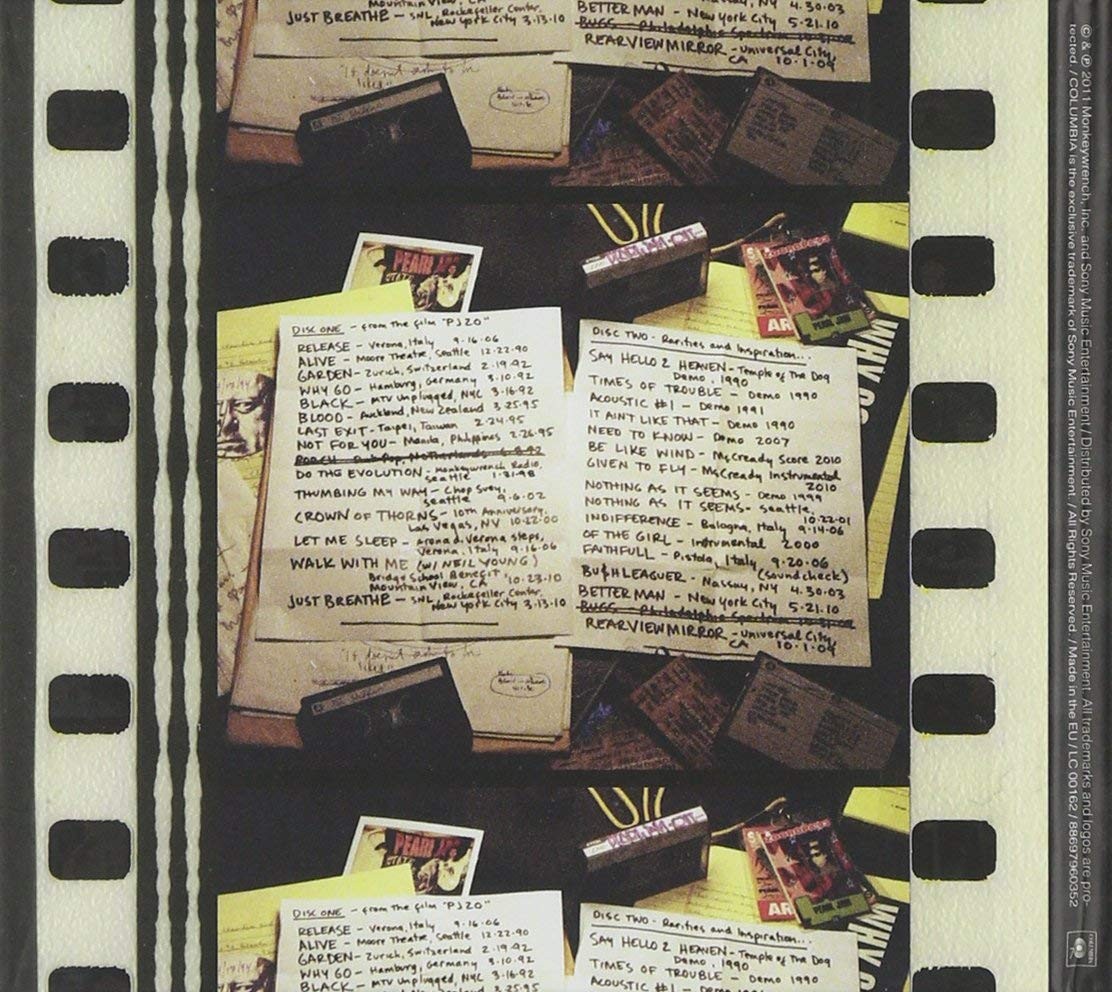 MOUNTAIN VIEW, CA
JUST BREATHE - SNL, Rockefeller Center,
New York City 3.13.10
BETTER MAN - New York City 5.21.10
BUGS - Philadelphia Spectrum 10.31.09
REARVIEWMIRROR - Universal City,
CA 10.1.09
PEARL JAM
DISC ONE - from the film "PJ20"
RELEASE - Verona, Italy 9.16.06
ALIVE - Moore Theatre, Seattle 12.22.90
GARDEN - Zurich, Switzerland 2.19.92
WHY GO - Hamburg, Germany 3.10.92
BLACK - MTV unplugged, NYC 3.16.92
BLOOD - Auckland, New Zealand 3.25.95
LAST EXIT - Taipei, Taiwan 2.24.95
NOT FOR YOU - Manila, Philippines 2.26.95
DO THE EVOLUTION - Monkeywrench Radio,
Seattle 1.31.98
THUMBING MY WAY - Chop Suey,
Seattle 9.6.02
CROWN OF THORNS - 10th Anniversary,
Las Vegas, NV 10.22.00
LET ME SLEEP - Arena d. Verona steps,
Verona, Italy 9.16.06
WALK WITH ME (w/ NEIL YOUNG)
Bridge School Benefit
Mountain View, CA 10.23.10
JUST BREATHE - SNL, Rockefeller Center,
New York City 3.13.10
DISC TWO - Rarities and Inspiration...
SAY HELLO 2 HEAVEN - Temple of The Dog
Demo, 1990
TIMES OF TROUBLE - Demo 1990
ACOUSTIC #1 - Demo 1991
IT AINT LIKE THAT - Demo 1990
NEED TO KNOW - Demo 2007
BE LIKE WIND - McCready Score 2010
GIVEN TO FLY - McCready Instrumental
2010
NOTHING AS IT SEEMS - Demo 1999
NOTHING AS IT SEEMS - Seattle,
10.22.01
INDIFFERENCE - Bologna, Italy 9.14.06
OF THE GIRL - Instrumental 2000
FAITHFULL - Pistoia, Italy 9.20.06
(soundcheck)
BU$HLEAGUER - Nassau, NY 4.30.03
BETTER MAN - New York City 5.21.10
BUGS - Philadelphia Spectrum 10.31.09
REARVIEWMIRROR - Universal City,
CA 10.1.09
PEARL JAM
DISC ONE - from the film "PJ20"
RELEASE - Verona, Italy 9.16.06
ALIVE - Moore Theatre, Seattle 12.22.90
GARDEN - Zurich, Switzerland 2.19.92
WHY GO - Hamburg, Germany 3.10.92
BLACK - MTV unplugged, NYC 3.16.92
DISC TWO - Rarities and Inspiration...
SAY HELLO 2 HEAVEN - Temple of The Dog
Demo, 1990
TIMES OF TROUBLE - Demo 1990
ACOUSTIC #1 - Demo 1991
© & ℗ 2011 Monkeywrench, Inc. and Sony Music Entertainment / Distributed by Sony Music Entertainment. All trademarks and logos are pro-
tected. / COLUMBIA is the exclusive trademark of Sony Music Entertainment. / All Rights Reserved. / Made in the EU / LC 00162 / 88697960352